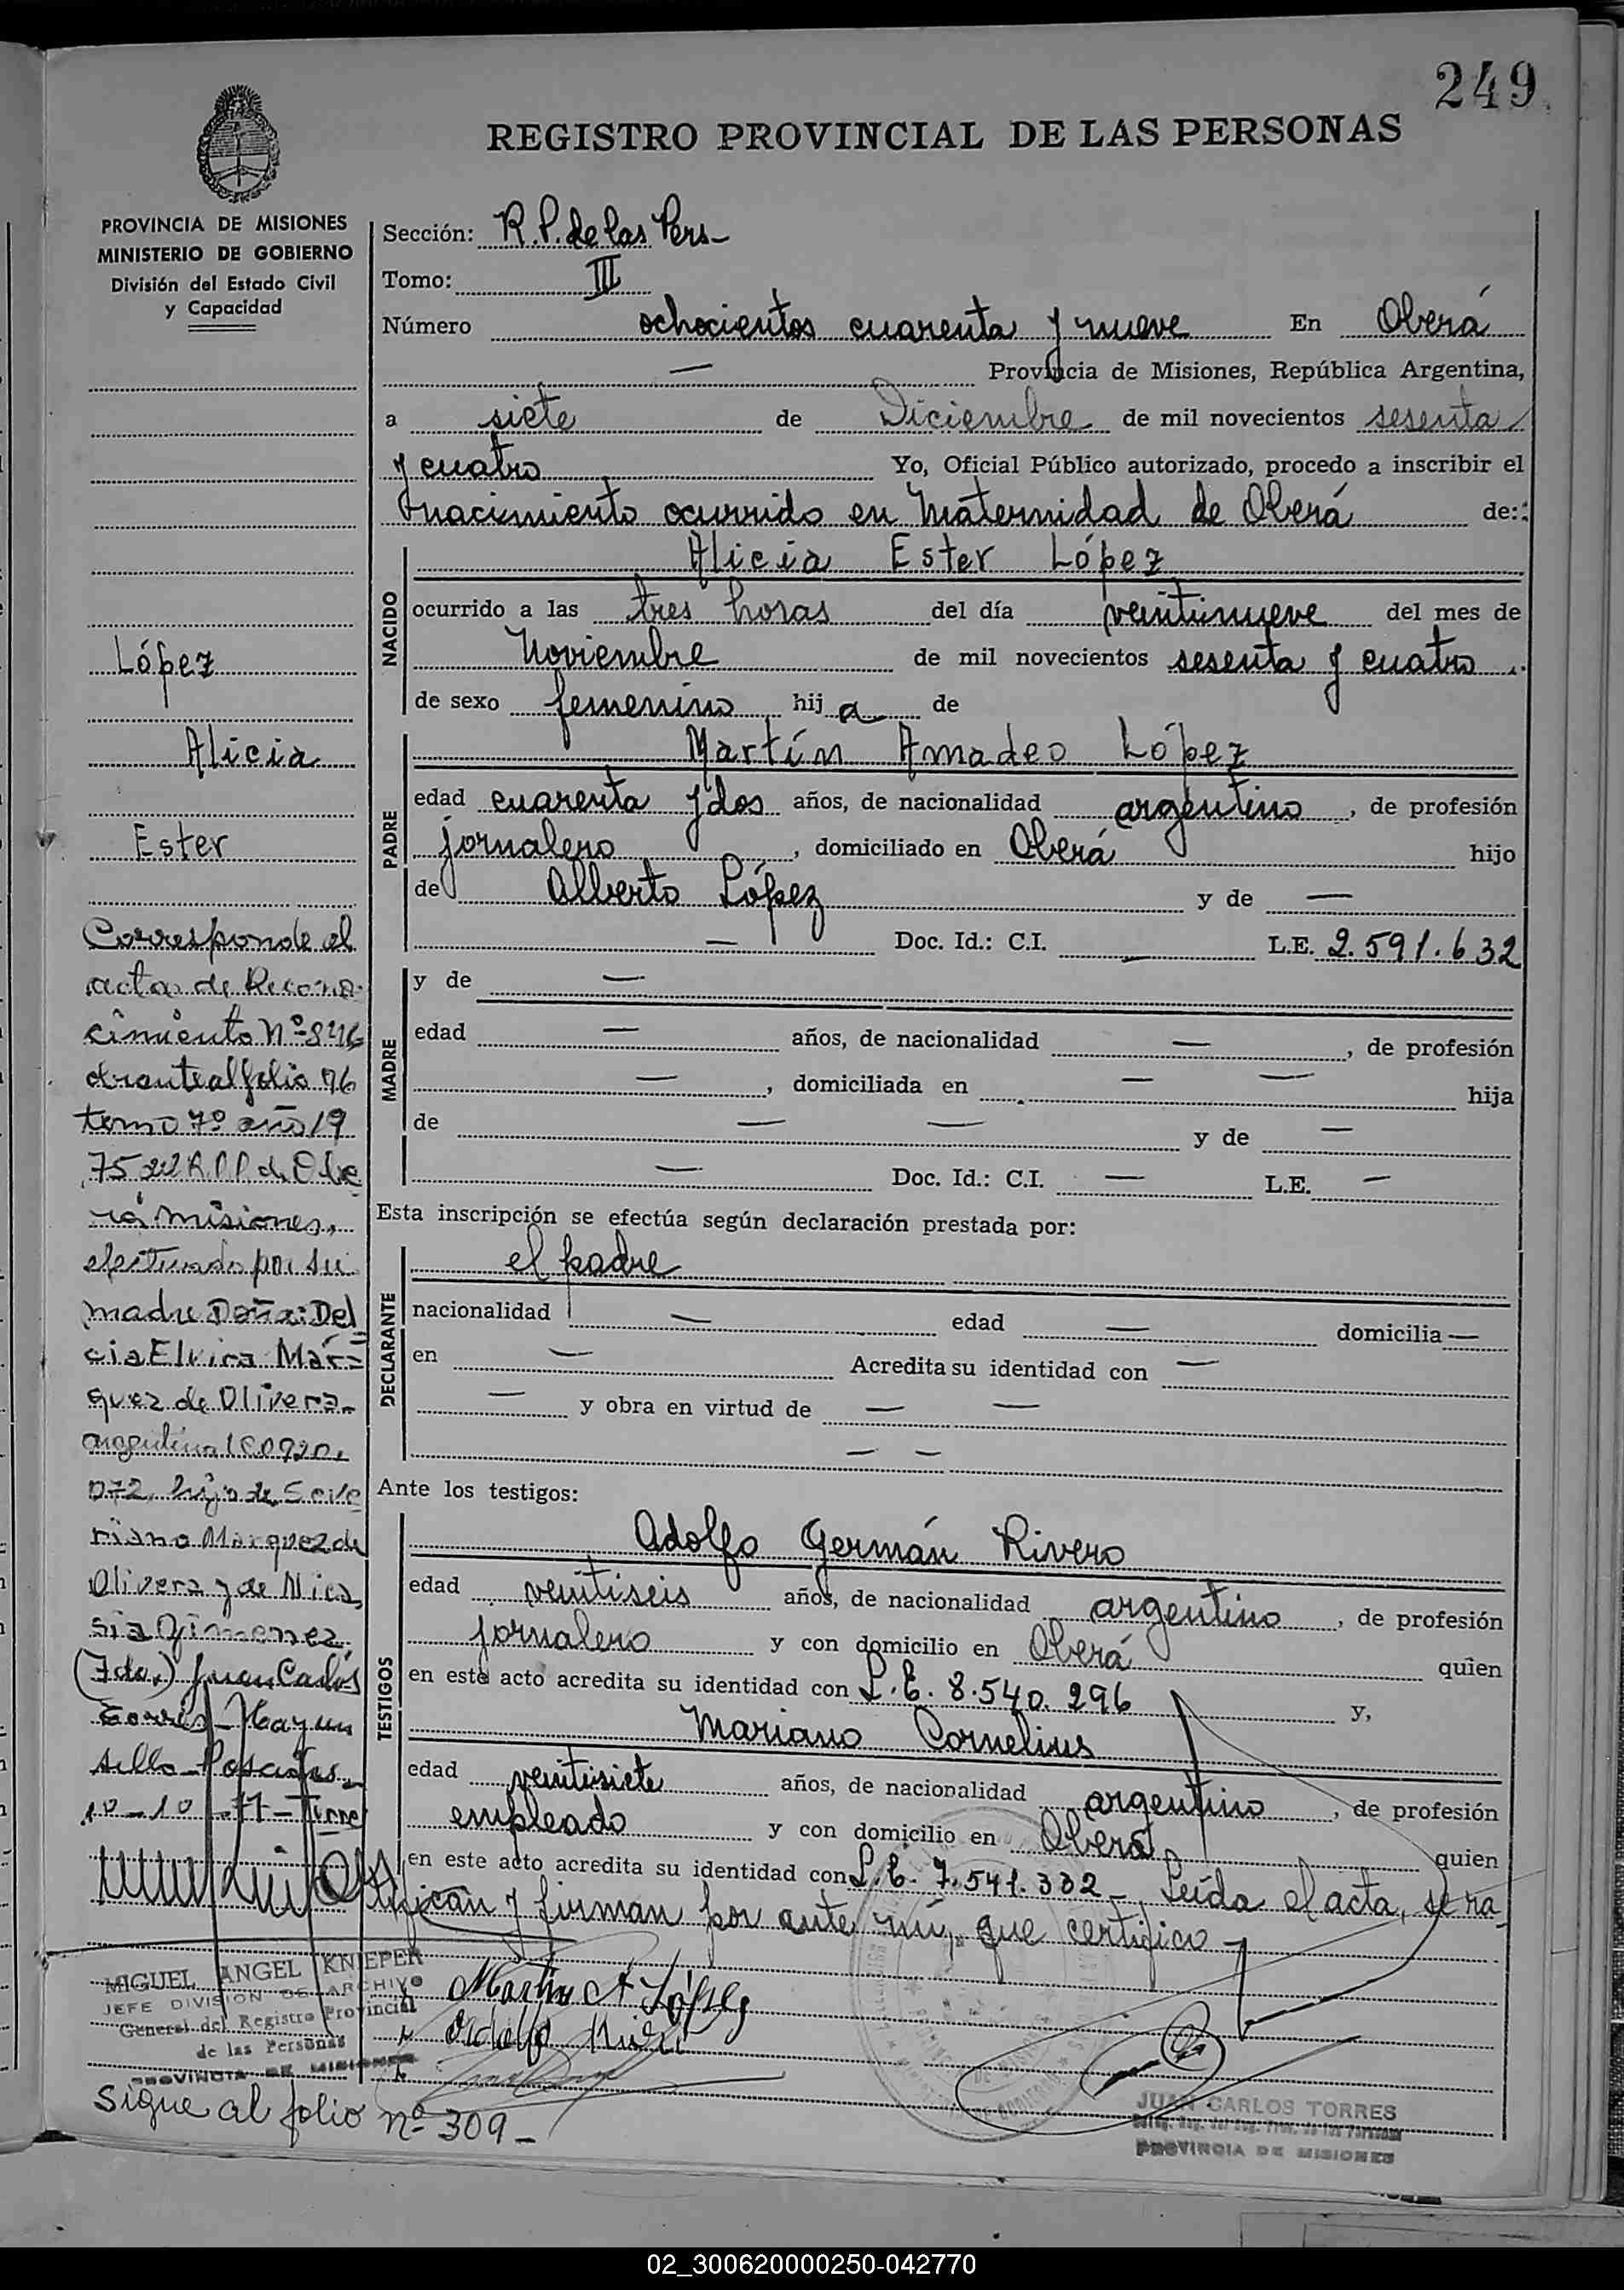 249
REGISTRO PROVINCIAL DE LAS PERSONAS
PROVINCIA DE MISIONES
MINISTERIO DE GOBIERNO
División del Estado Civil
y Capacidad
López
Alicia
Ester
Corresponde al
acta de Recono-
cimiento Nº 846
obrante al folio 76
tomo 7º año 19
75 del R.P.P. de Obe
rá Misiones,
efectuado por su
madre Doña: Del
cia Elvira Már=
quez de Olivera-
argentina LC 0920.
072, hija de Seve
riano Marquez de
Olivera y de Nica
sia Gimenez.
(Fdo.) Juan Carlos
Torres - Hay un
sello - Posadas -
10-10-77-
MIGUEL ANGEL KNIEPER
JEFE DIVISION DE ARCHIVO
General del Registro Provincial
de las Personas
PROVINCIA DE MISIONES
Sigue al folio nº 309-
Sección: R.P. de las Pers-
Tomo: III
Número ochocientos cuarenta y nueve En Oberá
— Provincia de Misiones, República Argentina,
a siete de Diciembre de mil novecientos sesenta
y cuatro Yo, Oficial Público autorizado, procedo a inscribir el
nacimiento ocurrido en Maternidad de Oberá de:
NACIDO
Alicia Ester López
ocurrido a las tres horas del día veintinueve del mes de
Noviembre de mil novecientos sesenta y cuatro.
de sexo femenino hij a de
PADRE
Martín Amadeo López
edad cuarenta y dos años, de nacionalidad argentino, de profesión
jornalero, domiciliado en Oberá hijo
de Alberto López y de —
— Doc. Id.: C.I. — L.E. 2.591.632
MADRE
y de —
edad — años, de nacionalidad —, de profesión
—, domiciliada en — — hija
de — — y de —
— Doc. Id.: C.I. — L.E. —
Esta inscripción se efectúa según declaración prestada por:
DECLARANTE
el padre
nacionalidad — edad — domicilia —
en — Acredita su identidad con —
— y obra en virtud de — —
— —
Ante los testigos:
TESTIGOS
Adolfo Germán Rivero
edad veintiseis años, de nacionalidad argentino, de profesión
jornalero y con domicilio en Oberá quien
en este acto acredita su identidad con L.E. 8.540.296 y,
Mariano Cornelius
edad veintisiete años, de nacionalidad argentino, de profesión
empleado y con domicilio en Oberá quien
en este acto acredita su identidad con L.E. 7.541.332 - Leída el acta, se ra
tifican y firman por ante mí, que certifico -
Martin A López
Adolfo
JUAN CARLOS TORRES
PROVINCIA DE MISIONES
02_300620000250-042770